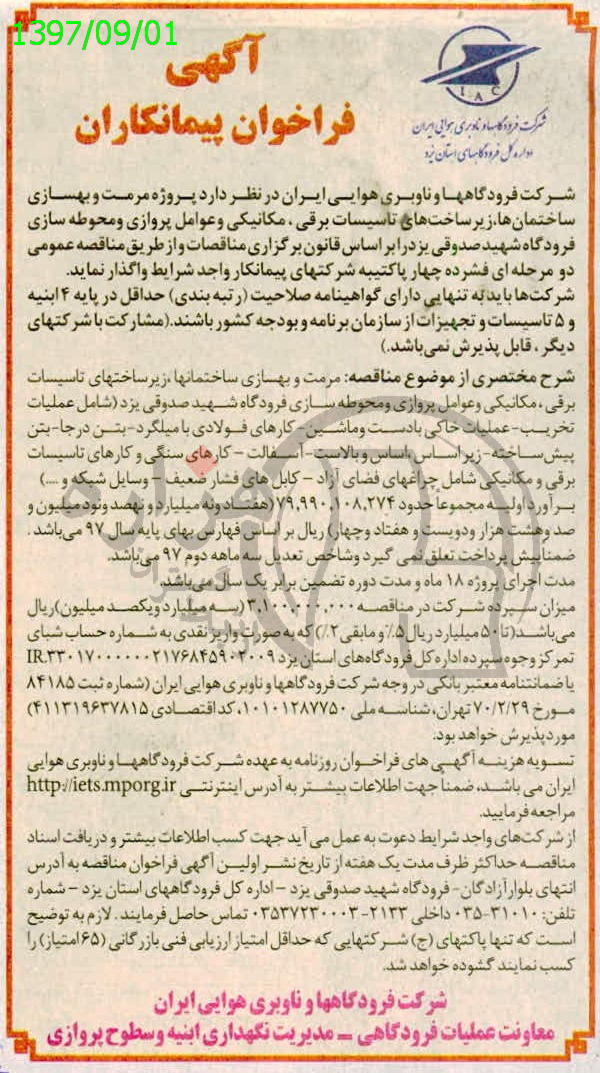 1397/09/01
آگهی
فراخوان پیمانکاران
IAC
شرکت فرودگاهها و ناوبری هوایی ایران
اداره کل فرودگاههای استان یزد
شرکت فرودگاهها و ناوبری هوایی ایران در نظر دارد پروژه مرمت و بهسازی
ساختمان‌ها، زیرساخت‌های تاسیسات برقی ، مکانیکی و عوامل پروازی و محوطه سازی
فرودگاه شهید صدوقی یزد را بر اساس قانون برگزاری مناقصات و از طریق مناقصه عمومی
دو مرحله ای فشرده چهار پاکتیبه شرکتهای پیمانکار واجد شرایط واگذار نماید.
شرکت‌ها باید به تنهایی دارای گواهینامه صلاحیت (رتبه بندی) حداقل در پایه ۴ ابنیه
و ۵ تاسیسات و تجهیزات از سازمان برنامه و بودجه کشور باشند.(مشارکت با شرکتهای
دیگر ، قابل پذیرش نمی‌باشد.)
شرح مختصری از موضوع مناقصه: مرمت و بهسازی ساختمانها ،زیرساختهای تاسیسات
برقی ، مکانیکی و عوامل پروازی و محوطه سازی فرودگاه شهید صدوقی یزد (شامل عملیات
تخریب-عملیات خاکی بادست و ماشین-کارهای فولادی با میلگرد-بتن درجا-بتن
پیش ساخته-زیراساس ،اساس و بالاست-آسفالت - کارهای سنگی و کارهای تاسیسات
برقی و مکانیکی شامل چراغهای فضای آزاد - کابل های فشار ضعیف - وسایل شبکه و ....)
برآورد اولیه مجموعاً حدود ۷۹,۹۹۰,۱۰۸,۲۷۴ (هفتاد و نه میلیارد و نهصد و نود میلیون و
صد و هشت هزار و دویست و هفتاد و چهار) ریال بر اساس فهارس بهای پایه سال ۹۷ می‌باشد .
ضمناً پیش پرداخت تعلق نمی گیرد و شاخص تعدیل سه ماهه دوم ۹۷ می‌باشد.
مدت اجرای پروژه ۱۸ ماه و مدت دوره تضمین برابر یک سال می‌باشد.
میزان سپرده شرکت در مناقصه ۳,۱۰۰,۰۰۰,۰۰۰ (سه میلیارد و یکصد میلیون) ریال
می باشد (تا ۵۰ میلیارد ریال ۵٪ و مابقی ۲٪) که به صورت واریز نقدی به شماره حساب شبای
تمرکز وجوه سپرده اداره کل فرودگاه‌های استان یزد
یا ضمانتنامه معتبر بانکی در وجه شرکت فرودگاهها و ناوبری هوایی ایران (شماره ثبت ۸۴۱۸۵
مورخ ۷۰/۲/۲۹ تهران، شناسه ملی ۱۰۱۰۱۲۸۷۷۵۰، کد اقتصادی ۴۱۱۳۱۹۶۳۷۸۱۵)
مورد پذیرش خواهد بود.
تسویه هزینه آگهی های فراخوان روزنامه به عهده شرکت فرودگاهها و ناوبری هوایی
ایران می باشد، ضمناً جهت اطلاعات بیشتر به آدرس اینترنتی http://iets.mporg.ir
مراجعه فرمایید.
از شرکت‌های واجد شرایط دعوت به عمل می آید جهت کسب اطلاعات بیشتر و دریافت اسناد
مناقصه حداکثر ظرف مدت یک هفته از تاریخ نشر اولین آگهی فراخوان مناقصه به آدرس
انتهای بلوار آزادگان- فرودگاه شهید صدوقی یزد - اداره کل فرودگاههای استان یزد - شماره
تلفن: ۳۱۰۱۰-۰۳۵ داخلی ۲۱۳۳- ۰۳۵۳۷۲۳۰۰۰۳ تماس حاصل فرمایند . لازم به توضیح
است که تنها پاکتهای (ج) شرکتهایی که حداقل امتیاز ارزیابی فنی بازرگانی (۶۵ امتیاز) را
کسب نمایند گشوده خواهد شد.
شرکت فرودگاهها و ناوبری هوایی ایران
معاونت عملیات فرودگاهی - مدیریت نگهداری ابنیه و سطوح پروازی